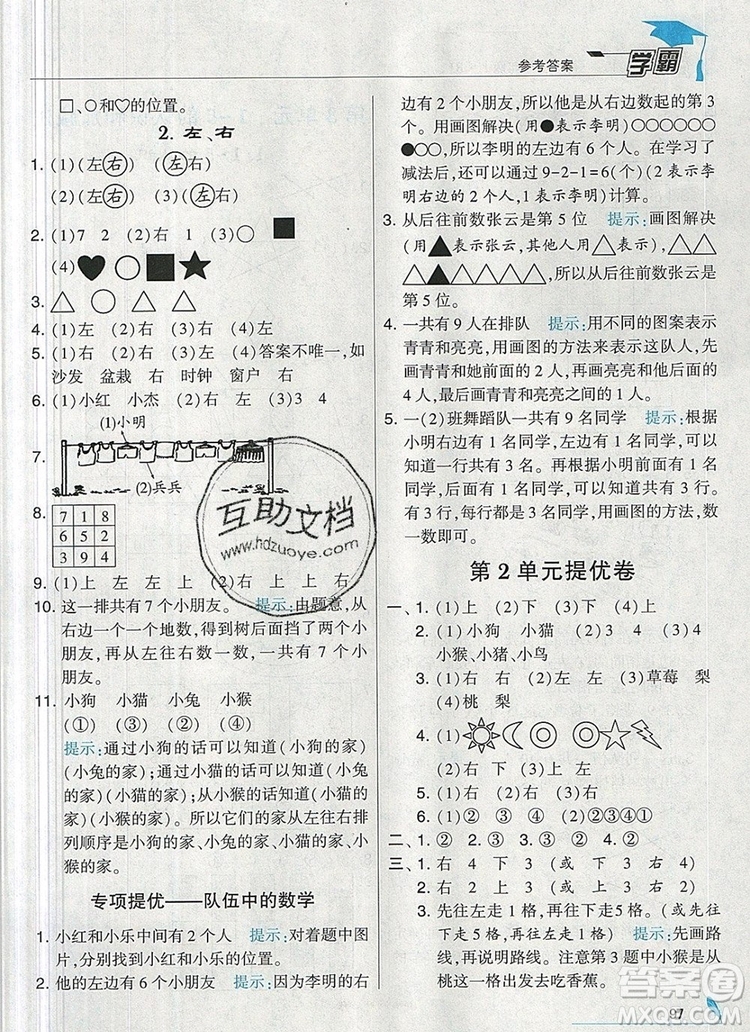 参考答案
学霸
□、○和♡的位置。
2.左、右
1. (1)(左右) (左右)
(2)(左右) (3)(左右)
2. (1)7 2 (2)右 1 (3)○ ■
(4)♥○■★
3. △ ○ △ △
4. (1)左 (2)右 (3)右 (4)左
5. (1)右 (2)左 (3)右 (4)答案不唯一,如
沙发 盆栽 右 时钟 窗户 右
6. (1)小红 小杰 (2)右 左 (3)3 4
(1)小明
7.
(2)兵兵
8. 7 1 8
6 5 2
3 9 4
9. (1)上 左 (2)右 上 上 右
10. 这一排共有7个小朋友。 提示:由题意,从
右边一个一个地数,得到树后面挡了两个小
朋友,再从左往右数一数,一共有7个小
朋友。
11. 小狗 小猫 小兔 小猴
(①) (③) (②) (④)
提示:通过小狗的话可以知道(小狗的家)
(小兔的家);通过小猫的话可以知道(小兔
的家)(小猫的家);从小猴的话可以知道(小
猫的家)(小猴的家)。所以它们的家从左往右排
列顺序是小狗的家、小兔的家、小猫的家、小
猴的家。
专项提优——队伍中的数学
1. 小红和小乐中间有2个人 提示:对着题中图
片,分别找到小红和小乐的位置。
2. 他的左边有6个小朋友 提示:因为李明的右
边有2个小朋友,所以他是从右边数起的第3
个。用画图解决(用●表示李明)○○○○○○
●○○,所以李明的左边有6个人。在学习了
减法后,还可以用9-2-1=6(个)(2表示李
明右边的2个人,1表示李明)计算。
3. 从后往前数张云是第5位 提示:画图解决
(用▲表示张云,其他人用△表示),△△
△▲△△△△,所以从后往前数张云是
第5位。
4. 一共有9人在排队 提示:用不同的图案表示
青青和亮亮,用画图的方法来表示这队人,先
画青青前面的2人,然后画亮亮后面的4
人,最后画青青和亮亮之间的1人。
5. 一(2)班舞蹈队一共有9名同学 提示:根据
小明右边有1名同学,左边有1名同学,可以
知道一行共有3名。再根据小明前面有1名
同学,后面有1名同学,可以知道一列共有3
名。有3行,每行都是3名,用画图的方法,数
一数即可。
第2单元提优卷
一、1. (1)上 (2)下 (3)下 (4)上
2. (1)小狗 小猫 (2)4 3 (3)右 4
小猴、小猪、小鸟
3. (1)右 右 (2)左 左 (3)草莓 梨
(4)桃 梨
4. (1)
(2)右 下 (3)上 右
5. (1)② ③ ④ (2)③④①
二、1.② 2.③ 3.② 4.②
三、1. 右 4 下 3 (或 下 3 右 4)
2. 上 2 右 3 (或 右 3 上 2)
3. 先往左走1格,再往下走5格。(或先往
下走5格,再往左走1格) 提示:先画路
线,再说明路线。注意第3题中小猴是从
桃这一格出发去吃香蕉。
互助文档
www.hdzuoye.com
答案圈
MXQE.COM
97